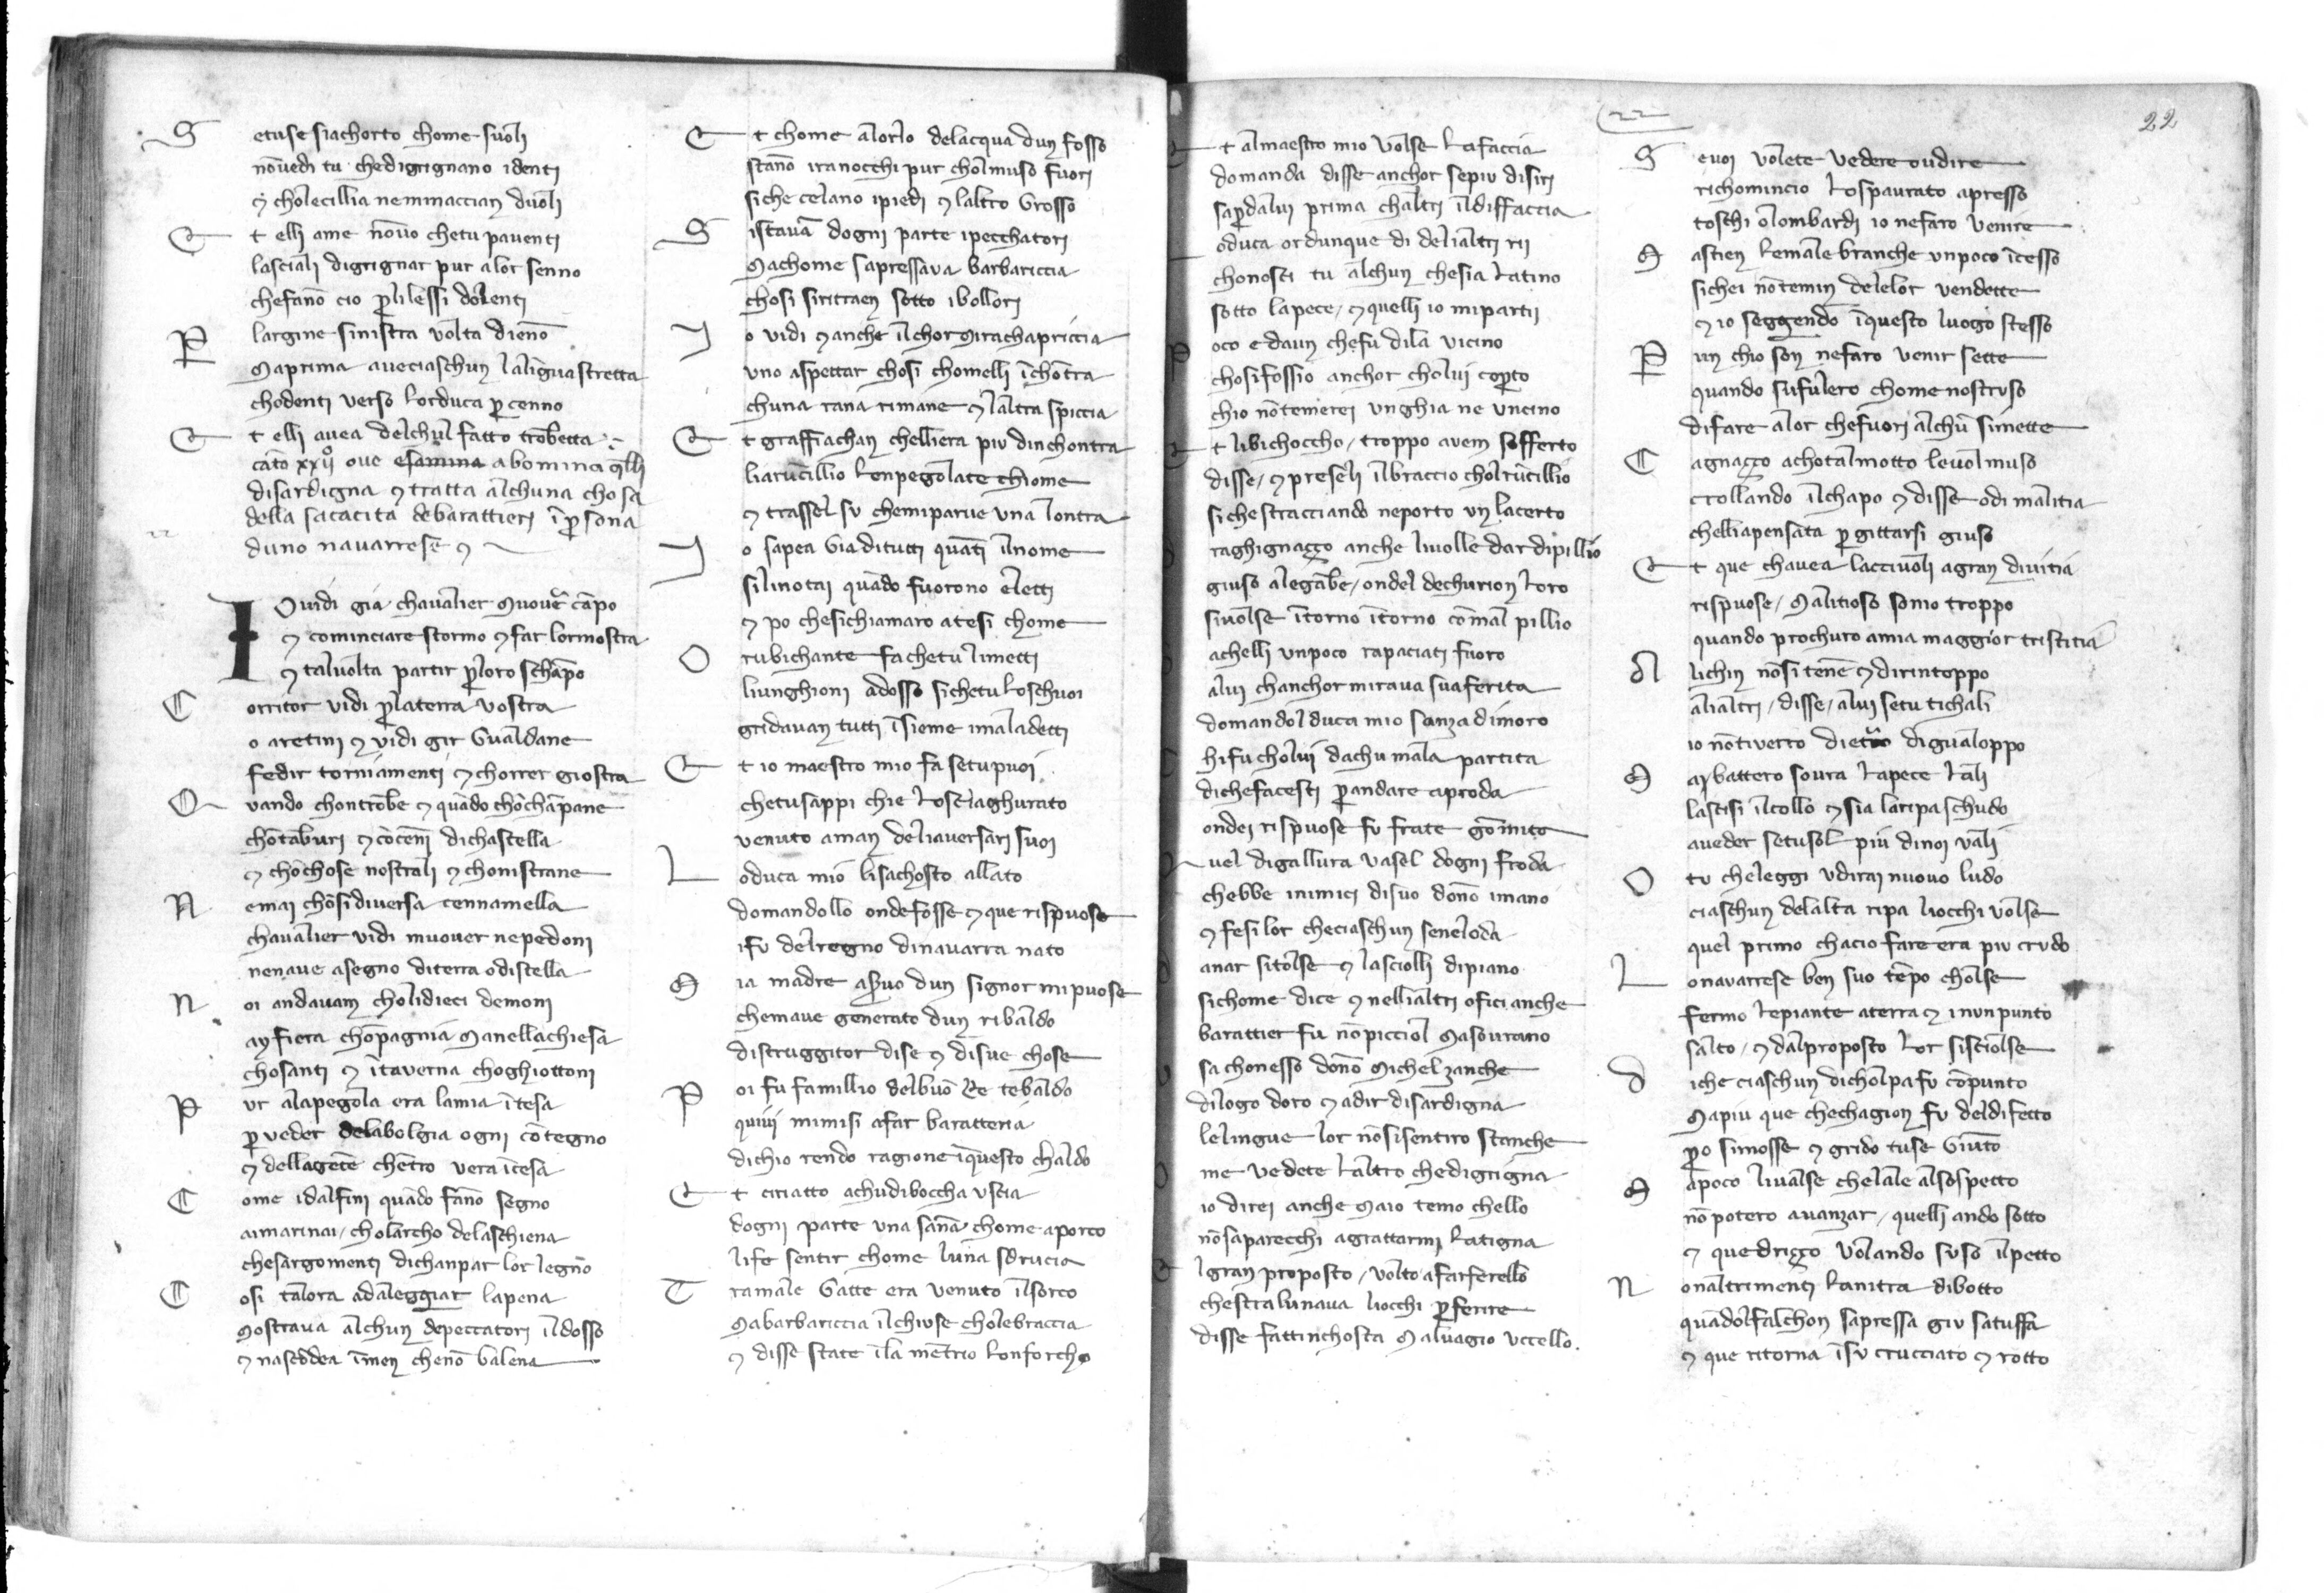 S etuse siachorto chome suoli
nōuedi tu chedigrignano identi
⁊ cholecillia neminaccian duoli
E t elli ame nōuo chetu pauenti
lasciali digrignar pur alor senno
chefanō cio ꝑlilessi dolenti
P largine sinistra volta dienō
Maprima aueciaschun lalīgua stretta
chodenti verso lorduca ꝑ cenno
E t elli auea delchul fatto trōbetta
cāto xxijº oue esamina abomina q̄lli
disardigna ⁊ tratta alchuna chosa
della sacacita de barattieri ī ꝑsona
duno nauarrese ⁊
22
I O uidi gia chaualier muouē cāpo
⁊ cominciare stormo ⁊ far lormostra
⁊ taluolta partir ꝑloro schāpo
C orritor vidi ꝑlaterra vostra
o aretini ⁊ vidi gir Gualdane
fedir torniamenti ⁊ chorrer giostra
Q uando chontrōbe ⁊ quādo chōchāpane
chōtāburi ⁊ cōcenī dichastella
⁊ chōchose nostrali ⁊ chonistrane
N emai chosidiuersa cennamella
chaualier vidi muouer nepedoni
nenaue asegno diterra odistella
N oi andauam cholidieci demoni
ay fiera chōpagnia Manellachiesa
chosanti ⁊ ītauerna choghiottoni
P ur alapegola era lamia ītesa
ꝑ veder delabolgia ogni cōtegno
⁊ dellagēte chētro vera īcesa
C ome idalfini quādo fanō segno
aimarinai / cholarcho delaschiena
chesargomenti dichanpar lor legno
C osi talora adaleggiar lapena
Mostraua alchun depeccatori ildosso
⁊ nascōdea īmen chenō balena
E t chome alorlo delacqua dun fosso
stanō iranocchi pur cholmuso fuori
siche celano ipiedi ⁊ laltro Grosso
S istauā dogni parte ipecchatori
Machome sapressaua barbariccia
chosi siritraen sotto ibollori
I o vidi ⁊ anche ilchor mirachapriccia
vno aspettar chosi chomelli īchōtra
chuna rana rimane ⁊ laltra spiccia
E t graffiachan chelliera piu dinchontra
liarūcillio lenpegolate chiome
⁊ trassel su chemiparue vna lontra
I o sapea Gia ditutti quāti ilnome
silinotai quādo fuorono eletti
⁊ po chesichiamaro atesi chome
O rubichante fachetu limetti
liunghioni adosso sichetu loschuoi
gridauan tutti īsieme imaladetti
E t io maestro mio fa setupuoi
chetusappi chie losciaghurato
venuto aman deliauersari suoi
L oduca mio lisachosto allato
domandollo ondefosse ⁊ que rispuose
ifu delregno dinauarra nato
M ia madre aseruo dun signor mipuose
chemaue generato dun ribaldo
distruggitor dise ⁊ disue chose
P oi fu famillio delbuō Re tebaldo
quiui mimisi afar baratteria
dichio rendo ragione īquesto chaldo
E t ciriatto achudiboccha vscia
dogni parte vna sānā chome aporco
life sentir chome luna sdrucia
T ramale Gatte era venuto ilsorco
Mabarbariccia ilchiuse cholebraccia
⁊ disse state ila mētrio lonforcho
22
22
E t almaestro mio volse lafaccia
domanda disse anchor sepiu disiri
saꝑdalui prima chaltri ildiffaccia
L oduca ordunque di delialtri rii
chonosci tu alchun chesia latino
sotto lapece / ⁊ quelli io miparti
P oco e daun chefu dila vicino
chosifossio anchor cholui coꝑto
chio nōtemerei vnghia ne vncino
E t libichoccho / troppo auem sofferto
disse / ⁊ preseli ilbraccio cholrūcillio
sichestracciando neporto vn lacerto
D raghignaçço anche liuolle dardipillio
giuso alegābe / ondel dechurion loro
siuolse ītorno ītorno comal pillio
Q uachelli unpoco rapaciati fuoro
alui chanchor miraua suaferita
domandol duca mio sanza dimoro
C hifu cholui dachu mala partita
dichefacesti ꝑ andare aproda
ondei rispuose fu frate gomito
Q uel digallura vasel dogni froda
chebbe inimici disuo donō imano
⁊ fesi lor checiaschun seneloda
D anar sitolse ⁊ lasciolli dipiano
sichome dice ⁊ nellialtri ofici anche
barattier fu nō picciol Masourano
U sa chonesso donō Michel zanche
dilogo doro ⁊ adir disardigna
lelingue lor nōsisentiro stanche
O me vedete laltro chedigrigna
io direi anche Maio temo chello
nōsaparecchi agrattarmi latigna
E lgran proposto / volto afarferello
chestralunaua liocchi ꝑ ferire
disse fattinchosta Maluagio vccello.
S euoi volete vedere oudire
richomincio lospaurato apresso
toschi olombardi io nefaro venire
M astien lemalebranche vnpoco īcesso
sichei nōtemin delelor vendette
⁊ io seggendo īquesto luogo stesso
P un chio son nefaro venir sette
quando sufulero chome nostruso
difare alor chefuori alchū simette
C agnaçço achotalmotto leuol muso
crollando ilchapo ⁊ disse odi malitia
chelliapensata ꝑ gittarsi giuso
E t que chauea lacciuoli agran diuitia
rispuose / Malitioso sonio troppo
quando prochuro amia maggior tristitia
A lichin nōsi tenē ⁊ dirintoppo
alialtri / disse / alui setu tichali
io nōtiuerro dietro digualoppo
M aybattero soura lapece lali
lascisi ilcollo ⁊ sia laripa schudo
aueder setusol piu dinoi vali
O tu cheleggi vdirai nuouo ludo
ciaschun delalta ripa liocchi volse
quel primo chacio fare era piu crudo
L onauarrese ben suo tēpo cholse
fermo lepiante aterra ⁊ inunpunto
salto / ⁊ dalproposto lor sisciolse
D iche ciaschun dicholpa fu cōpunto
Mapiu que chechagion fu deldifetto
ꝑo simosse ⁊ grido tuse Giūto
M apoco liualse chelale alsospetto
nō potero auanzar / quelli ando sotto
⁊ quedriçço volando suso ilpetto
N onaltrimenti lanitra dibotto
quādolfalchon sapressa giu satuffa
⁊ que ritorna īsu crucciato ⁊ rotto